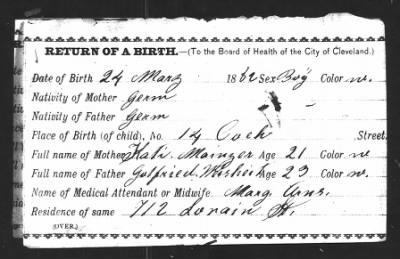 RETURN OF A BIRTH.—(To the Board of Health of the City of Cleveland.)
Date of Birth 24 Marz 18 Sex Boy Color w.
Nativity of Mother Germ
Nativity of Father Germ
Place of Birth (of child), No. 14 Street.
Full name of Mother Kati Mainzer Age 21 Color w
Full name of Father Gotfried Age 23 Color w.
Name of Medical Attendant or Midwife Marg Arns.
Residence of same 712 Lorain St.
(OVER.)